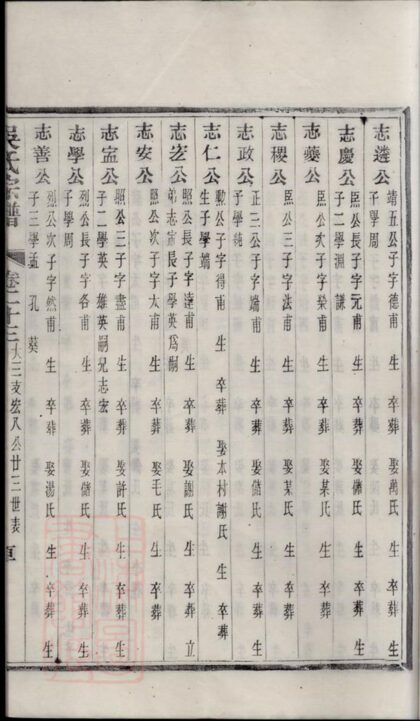 志遴公 靖五公子字德甫 生 卒葬 娶萬氏 生 卒葬 生
子學周
志慶公 臣公長子字元甫 生 卒葬 娶儲氏 生 卒葬 生
子二學淵 謙
志夔公 臣公次子字榮甫 生 卒葬 娶某氏 生 卒葬
志稷公 臣公三子字法甫 生 卒葬 娶某氏 生 卒葬
志政公 正三公子字端甫 生 卒葬 娶儲氏 生 卒葬 生
子學純
志仁公 勳公子字得甫 生 卒葬 娶太村謝氏 生 卒葬
生子學
志宏公 照公長子字達甫 生 卒葬 娶謝氏 生 卒葬 立
弟志寍長子學英爲嗣
志安公 照公次子字太甫 生 卒葬 娶毛氏 生 卒葬
志寍公 照公三子字盡甫 生 卒葬 娶許氏 生 卒葬 生
子二學英 雄英嗣兄志宏
志學公 烈公長子字各甫 生 卒葬 娶儲氏 生 卒葬 生
子學周
志善公 烈公次子字然甫 生 卒葬 娶湯氏 生 卒葬 生
子三學孟 孔 葵
吳氏宗譜 卷二十三 大三支宏八公廿三世表